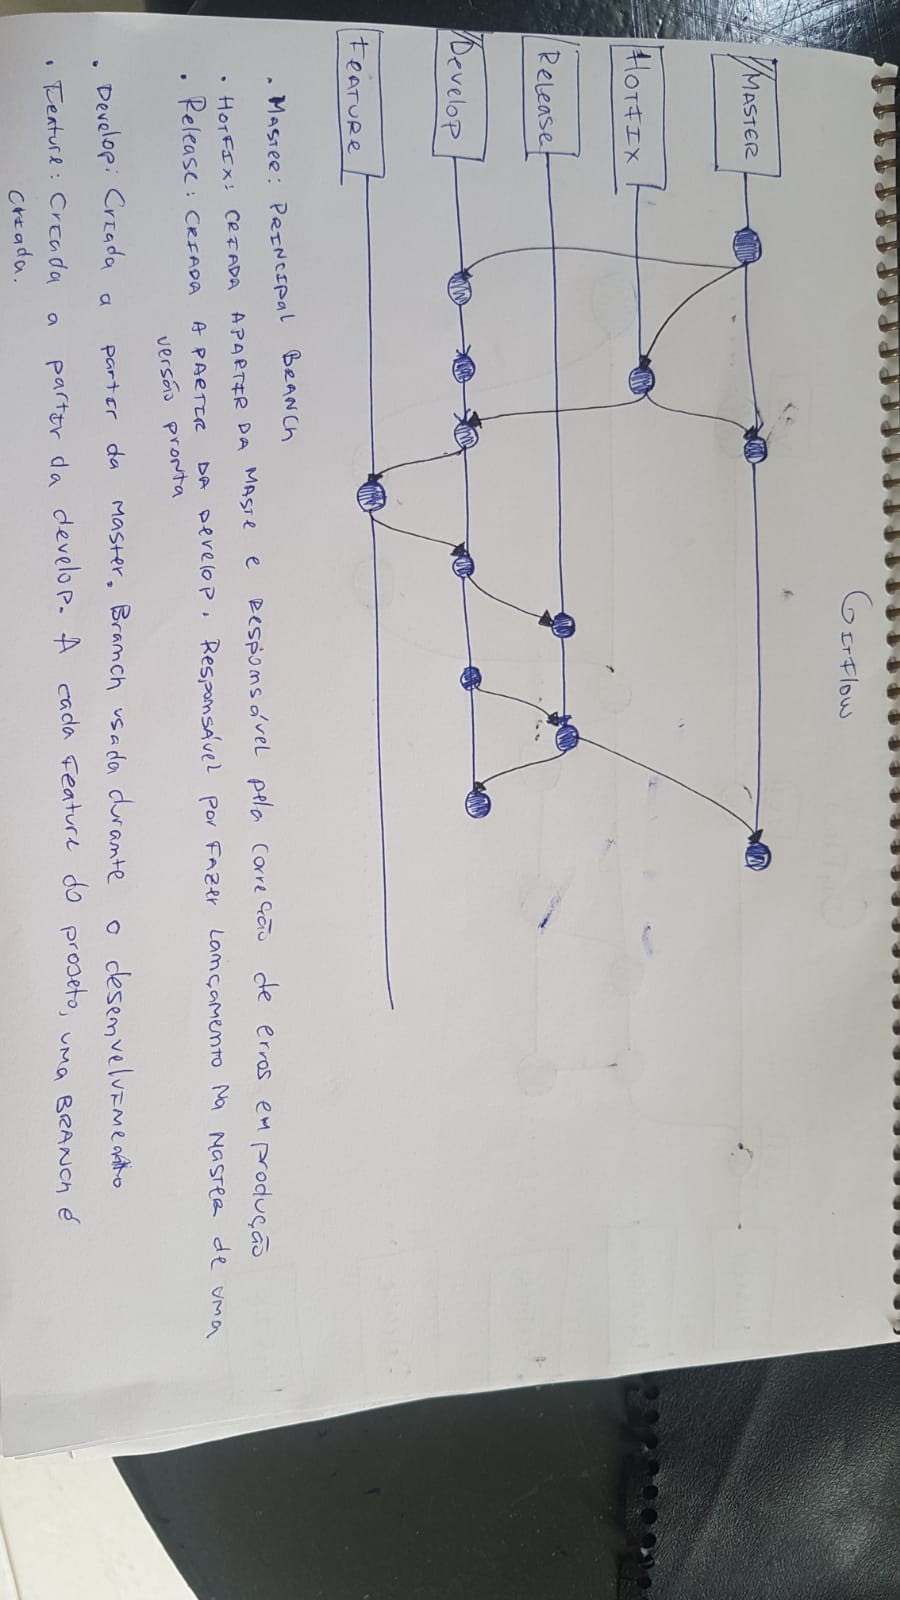 GitFlow
MASTER
HOTFIX
Release
Develop
FEATURE
• Master: PRINCIPAL BRANCH
• HOTFIX: CRIADA APARTIR DA MASTE e Responsável pela Correção de erros em produção
• Release: CRIADA A PARTIR DA Develop. Responsável por Fazer Lançamento Na Master de uma
versão pronta
• Develop: Criada a partir da master. Branch usada durante o desenvelvimento
• Feature: Criada a partir da develop. A cada Feature do projeto, uma BRANCH é
criada.